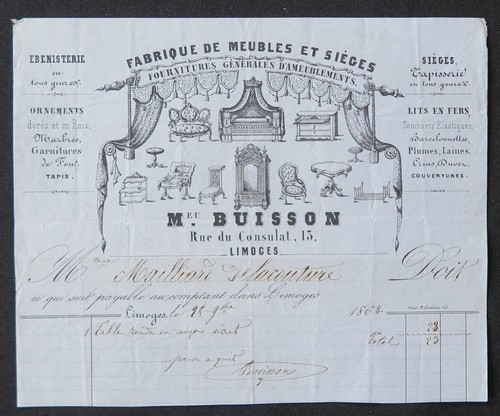 FABRIQUE DE MEUBLES ET SIÈGES
FOURNITURES GÉNÉRALES D'AMEUBLEMENTS.
EBENISTERIE
en
tous genres.
ORNEMENTS
dorés et en Bois,
Marbres,
Garnitures
de Feu,
TAPIS.
SIÈGES,
Tapisserie
en tous genres.
LITS EN FERS,
Sommiers Elastiques,
Barcelonnettes,
Plumes, Laines,
Crins, Duvet,
COUVERTURES.
MEU BUISSON
Rue du Consulat, 15,
LIMOGES.
M Mailliard Delacouture Doit
ce qui suit payable au comptant dans Limoges
Limoges, le 28 9bre 1863.
1 table ronde en noyer 23
Total 23
pour acquit
Buisson